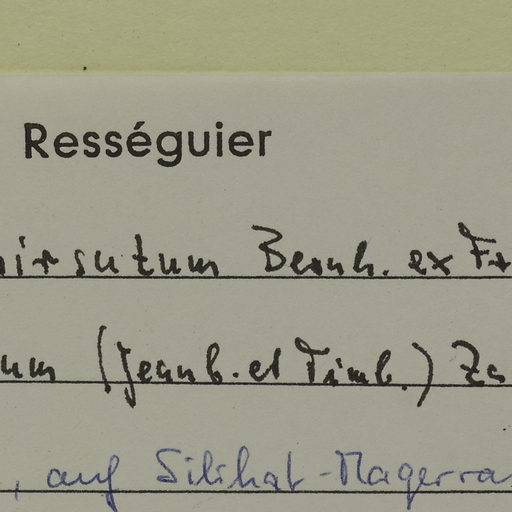 Rességuier
hirsutum Bernh. ex Fr
um (Jeanb. et Timb.) Za
, auf Silikat-Magerra